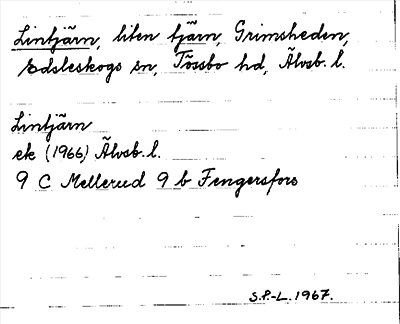 Lintjärn, liten tjärn, Grimsheden,
Edsleskogs sn, Tössbo hd, Älvsb. l.
Lintjärn
ek (1966) Älvsb. l.
9 C Mellerud 9 b Fengersfors
S.P.-L. 1967.